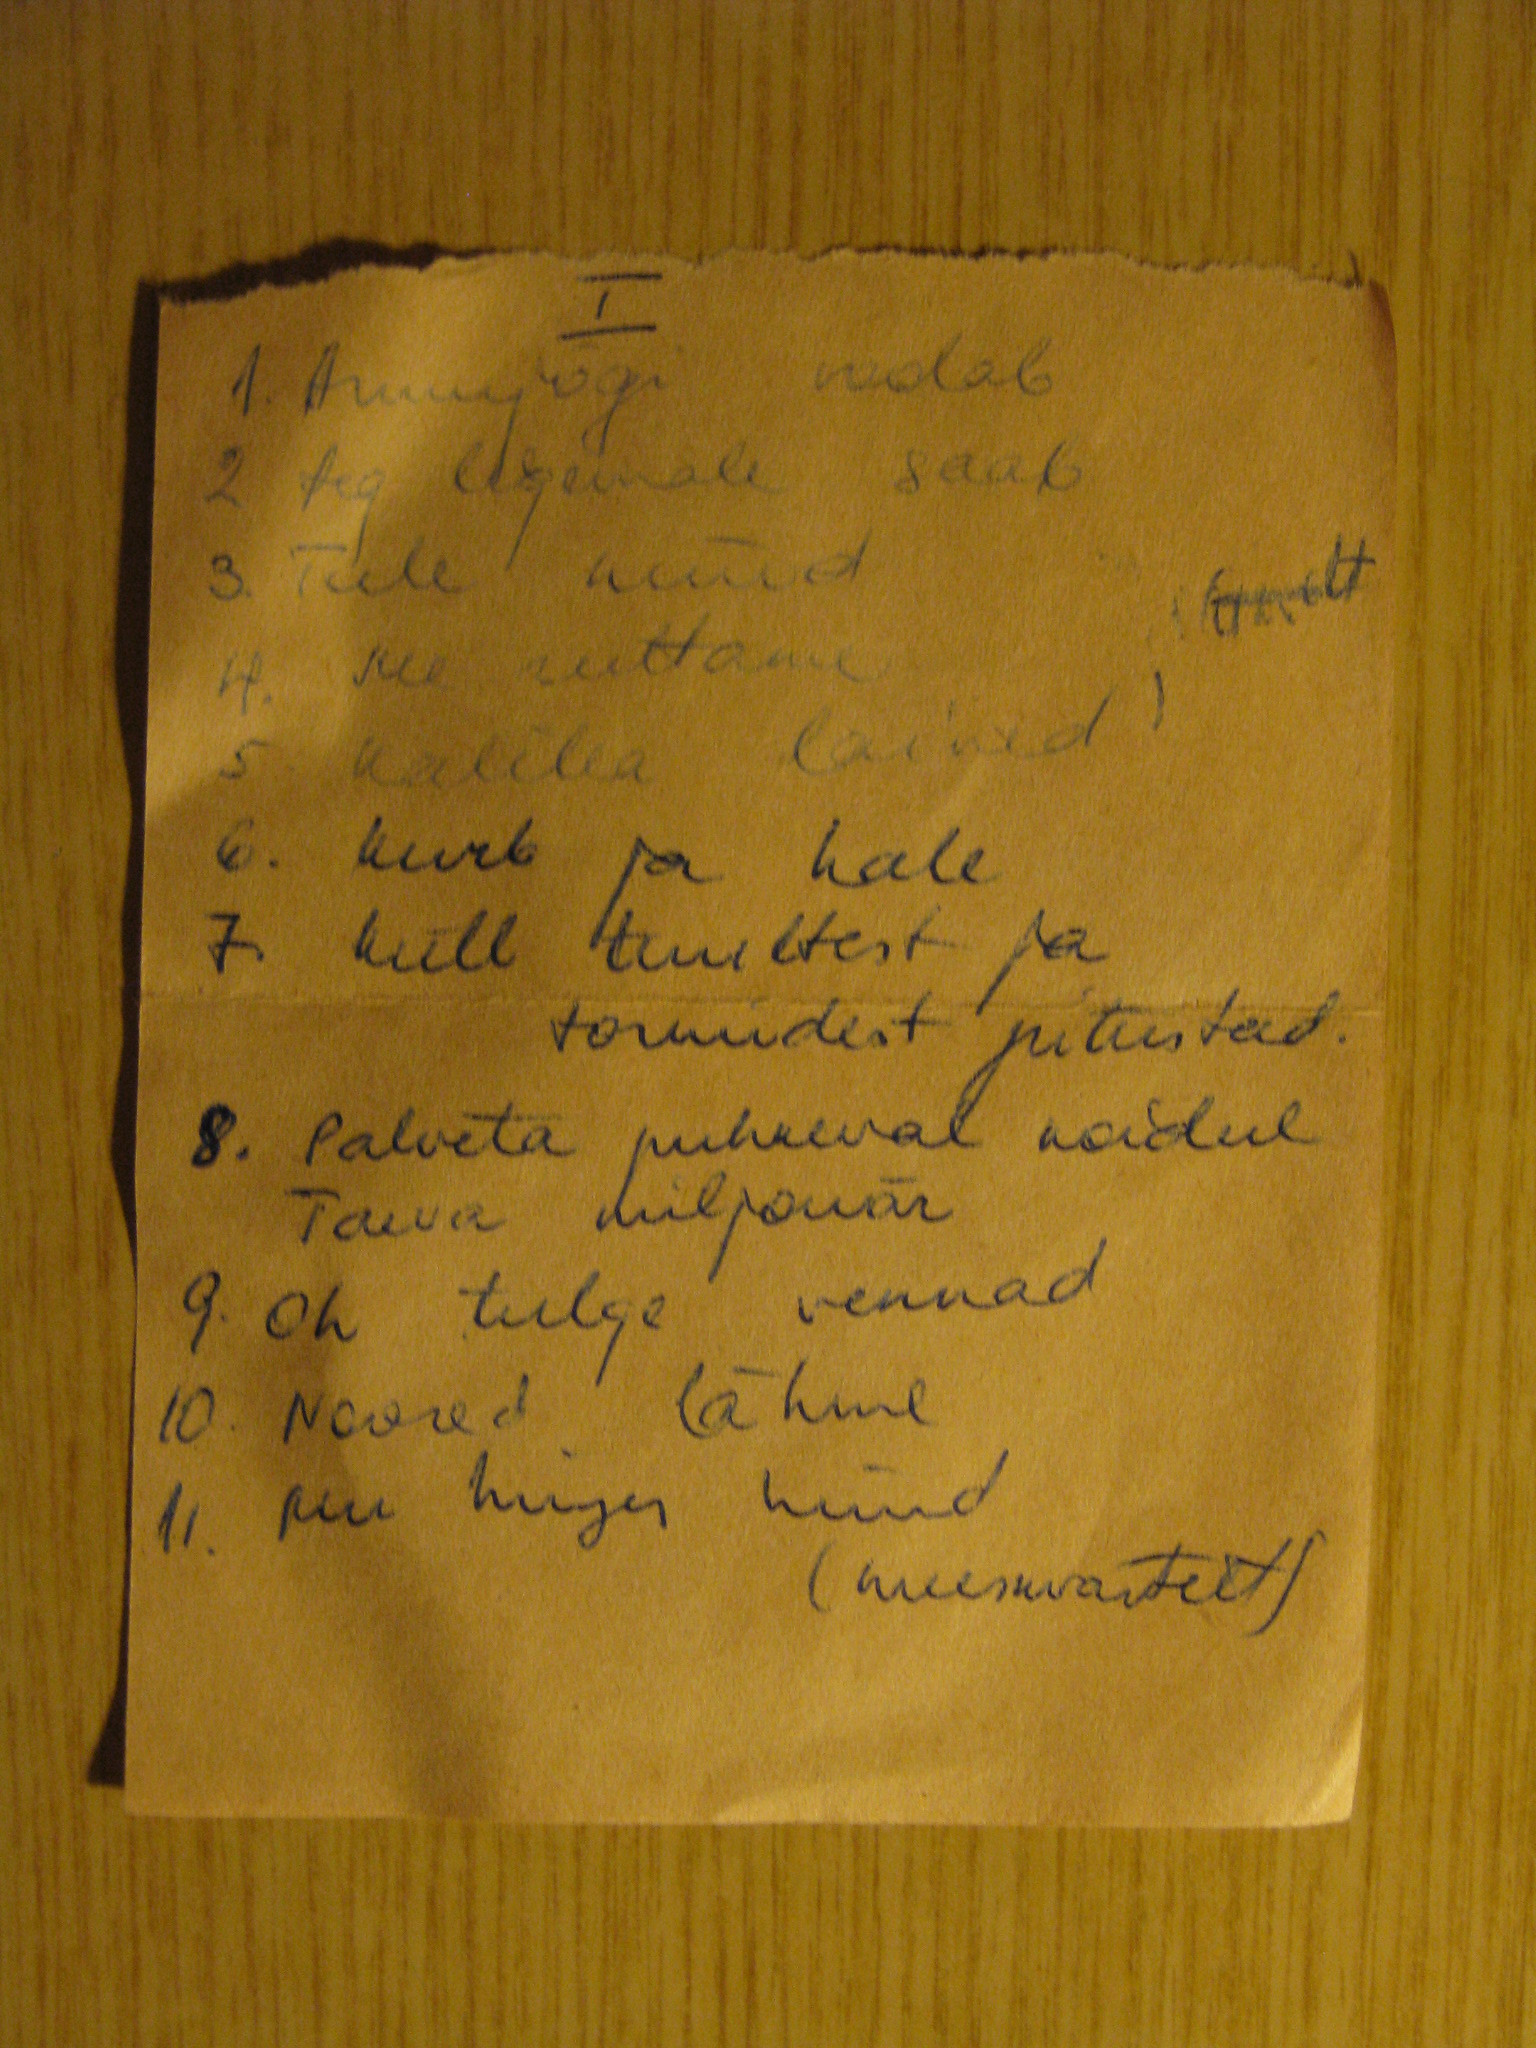 I
1. Armujõgi vedab
2 Aeg ligemale saab
3. Tule nüüd
4. Me ruttame
5. Kalilea lained
6. Kurb ja hale
7. Küll tuultest ja
tormidest pitustad.
8. Palveta puhkeval koidul
Taeva miljonär
9. Oh tulge vennad
10. Noored lähme
11. Mu hinges hüüd
(meeskvartett)